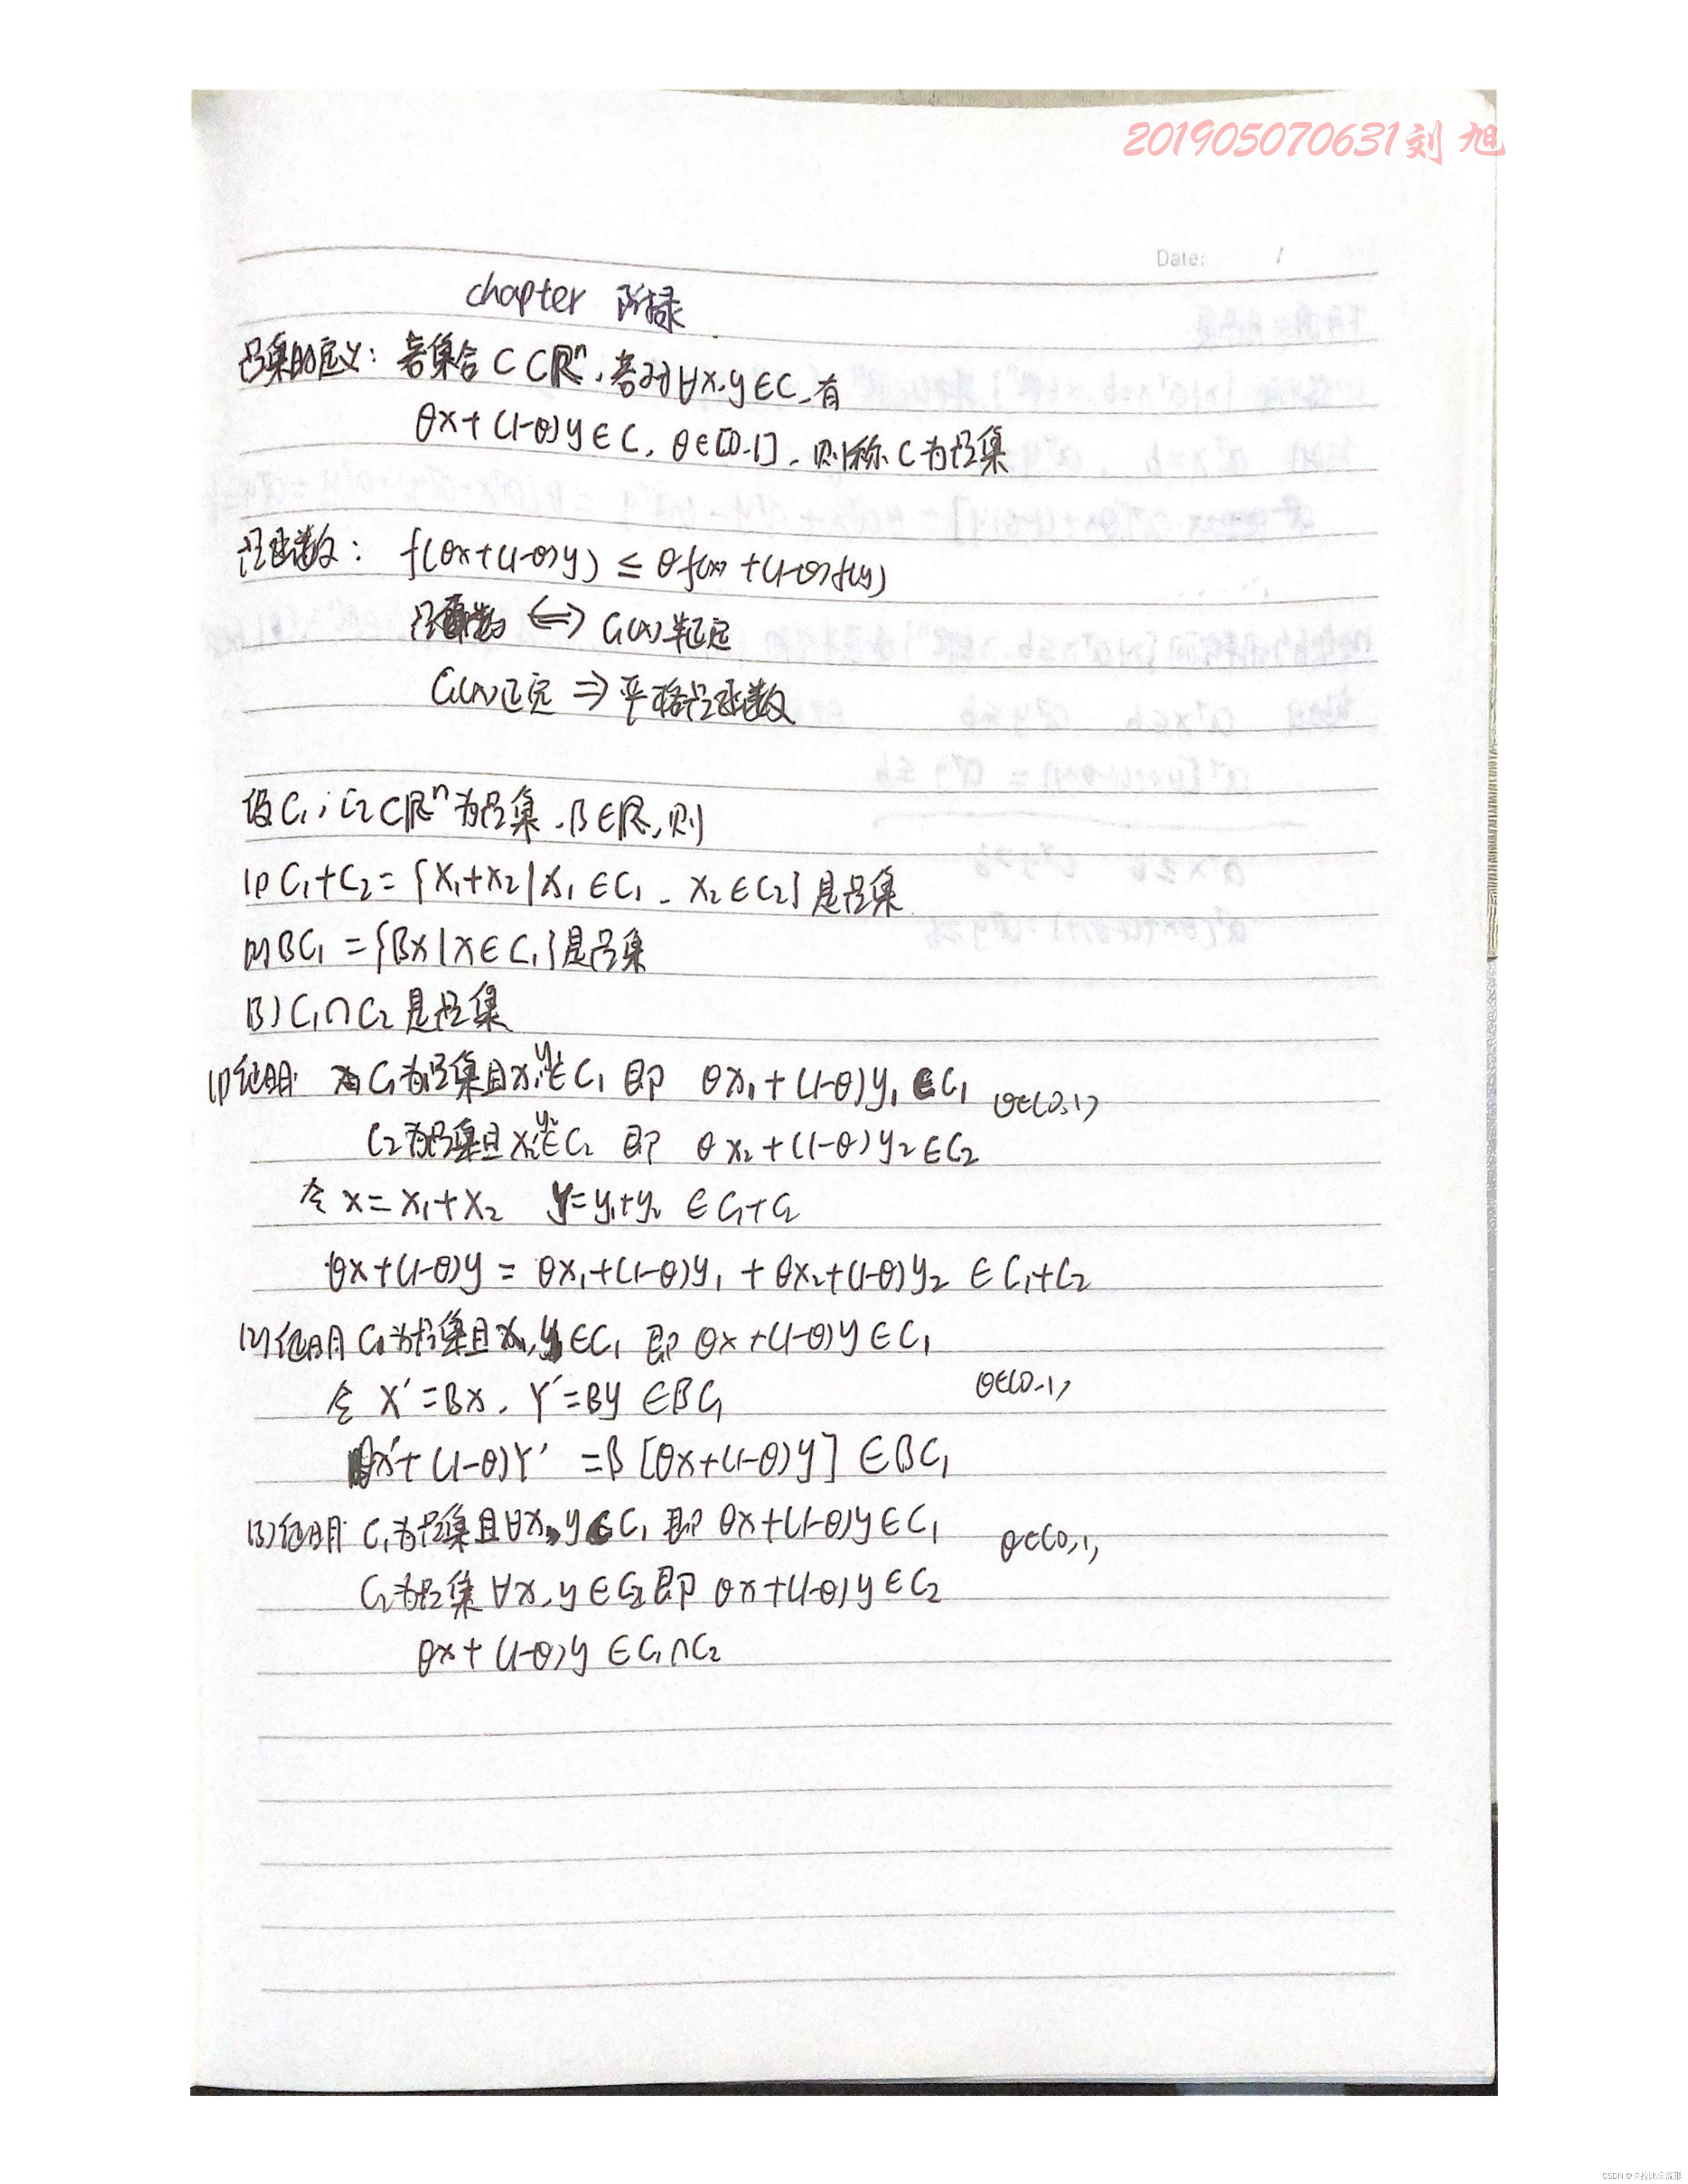 201905070631刘旭
Date: /
chapter 附录
凸集的定义: 若集合 C⊂ℝⁿ, 若对∀x,y∈C,有
θx+(1-θ)y∈C, θ∈[0,1], 则称C为凸集
凸函数: f(θx+(1-θ)y) ≤ θf(x)+(1-θ)f(y)
凸函数 ⇔ G(x)半正定
G(x)正定 ⇒ 严格凸函数
设C₁,C₂⊂ℝⁿ为凸集,β∈ℝ,则
(1) C₁+C₂={x₁+x₂|x₁∈C₁, x₂∈C₂}是凸集
(2) βC₁={βx|x∈C₁}是凸集
(3) C₁∩C₂是凸集
(1)证明: C₁为凸集且x₁,y₁∈C₁ 即 θx₁+(1-θ)y₁∈C₁ θ∈(0,1)
C₂为凸集且x₂,y₂∈C₂ 即 θx₂+(1-θ)y₂∈C₂
令 x=x₁+x₂ y=y₁+y₂ ∈C₁+C₂
θx+(1-θ)y = θx₁+(1-θ)y₁+θx₂+(1-θ)y₂ ∈C₁+C₂
(2)证明 C₁为凸集且x,y∈C₁ 即 θx+(1-θ)y∈C₁
θ∈(0,1)
令 X'=βx, Y'=βy ∈βC₁
θX'+(1-θ)Y' =β[θx+(1-θ)y]∈βC₁
(3)证明: C₁为凸集且∀x,y∈C₁ 即 θx+(1-θ)y∈C₁ θ∈(0,1)
C₂为凸集∀x,y∈C₂即 θx+(1-θ)y∈C₂
θx+(1-θ)y ∈C₁∩C₂
CSDN @卡拉比丘流形